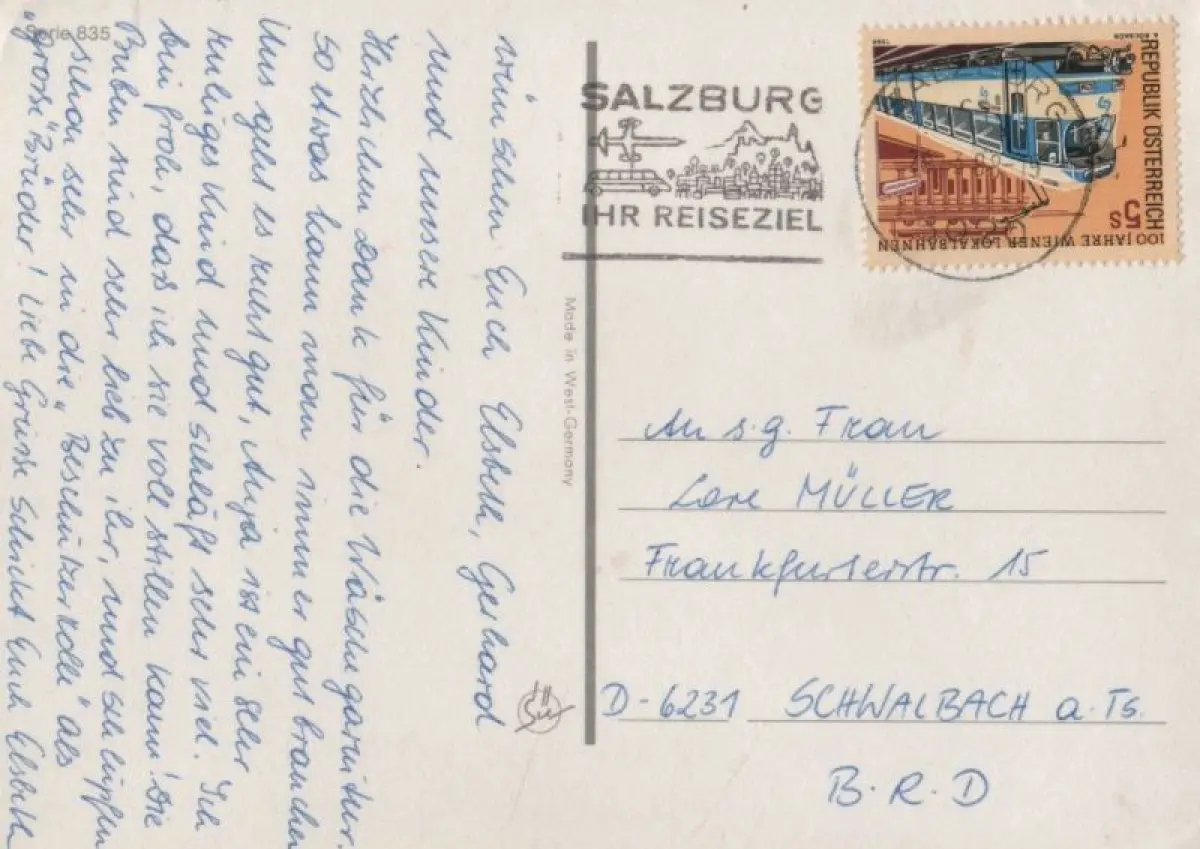 Serie 835
wünschen Euch Elsbeth, Gerhard
und unsere Kinder.
Herzlichen Dank für die Wäschegarnitur.
So etwas kann man immer gut brauchen
Uns geht es recht gut, Anja ist ein sehr
ruhiges Kind und schläft sehr viel. Ich
bin froh, das ich sie voll stillen kann! Die
Buben sind sehr lieb zu ihr, und schlüpfen
schon sehr in die „Beschützerrolle" als
„grosse" Brüder! Liebe Grüsse schickt Euch Elsbeth
Made in West-Germany
SALZBURG
IHR REISEZIEL
REPUBLIK ÖSTERREICH
5s
100 JAHRE WIENER LOKALBAHNEN
An s.g. Frau
Lore MÜLLER
Frankfurterstr. 15
D-6231 SCHWALBACH a.Ts.
B.R.D